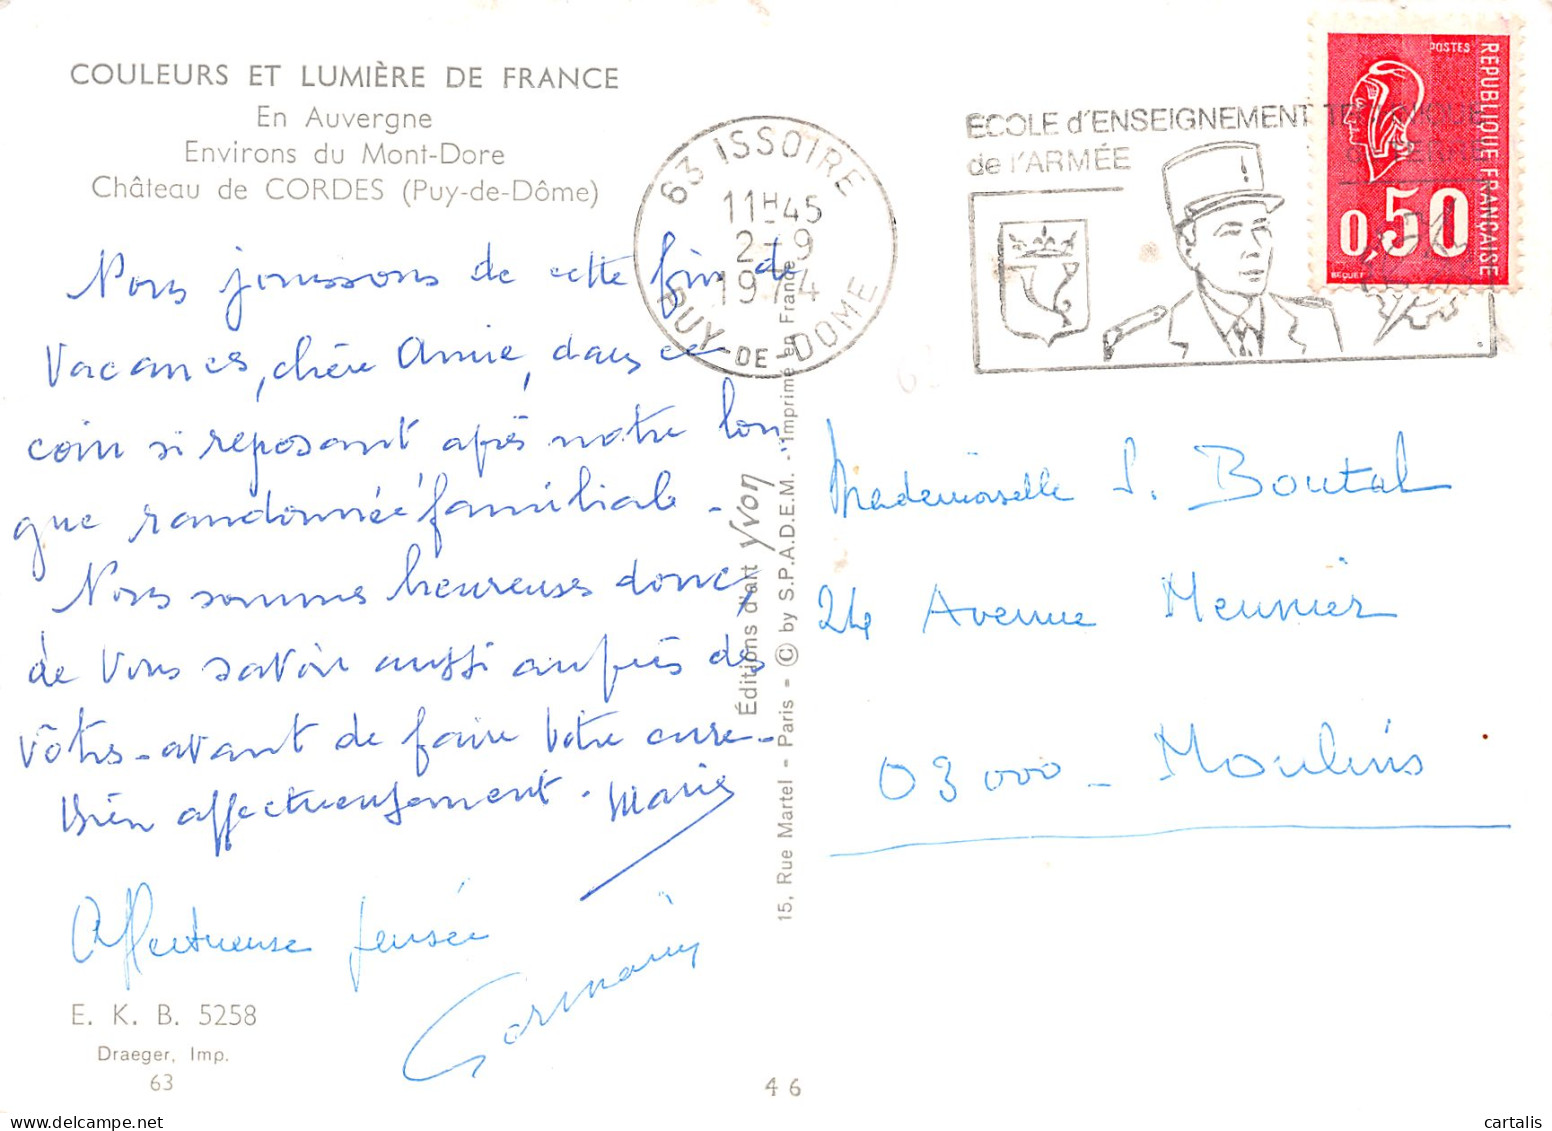 COULEURS ET LUMIÈRE DE FRANCE
En Auvergne
Environs du Mont-Dore
Château de CORDES (Puy-de-Dôme)
Nous jouissons de cette fin de
vacances, chère Amie, dans ce
coin si reposant après notre lon
gue randonnée familiale.
Nous sommes heureuses donc,
de vous savoir aussi auprès des
vôtres - avant de faire votre cure -
Bien affectueusement. Marie
Affectueuse pensée
Germaine
E. K. B. 5258
Draeger, Imp.
63
63 ISSOIRE
11H45
2-9
1974
PUY-DE-DOME
Éditions d'art Yvon
15, Rue Martel - Paris - © by S.P.A.D.E.M. - Imprimé en France
46
ECOLE d'ENSEIGNEMENT TECHNIQUE
de l'ARMÉE de TERRE
POSTES
REPUBLIQUE FRANÇAISE
0,50
BEQUET
Mademoiselle S. Boutal
24 Avenue Meunier
03000 - Moulins
https://www.delcampe.net
cartalis